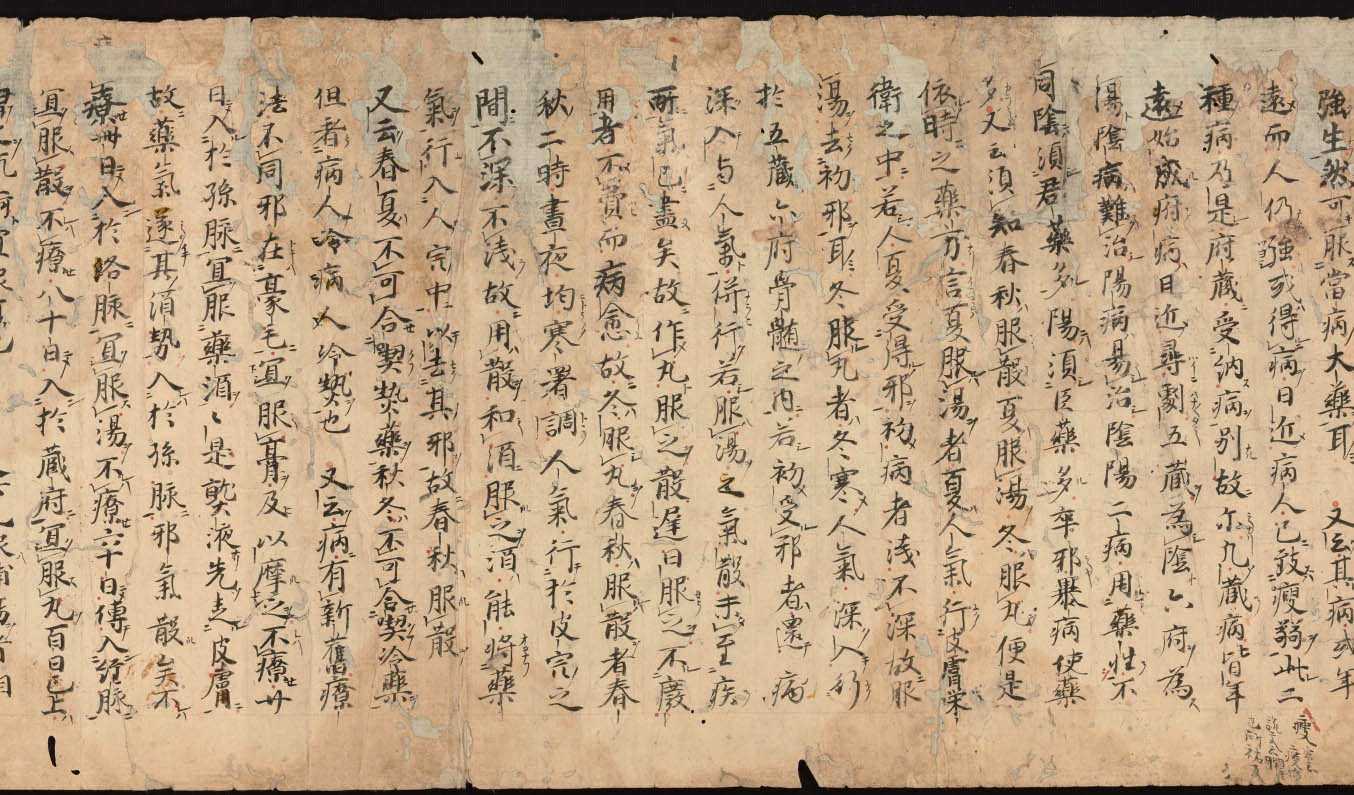 強生然可服當病大藥耳 又云其病或年
遠而人仍強或得病日近病人已致瘦弱此二
種病乃是府蔵受納病別故尓九蔵病皆年
遠始成府病日近尋劇五蔵為陰六府為
陽陰病難治陽病易治陰陽二病用藥性不
同陰須君藥多陽須臣藥多卒邪暴病使藥
多又云須知春秋服散夏服湯冬服丸便是
依時之藥方言夏服湯者夏人氣行皮膚栄
衛之中若人夏受得邪初病者浅不深故服
湯去初邪耳冬服丸者冬寒人氣深入行
於五蔵六府骨髄之内若初受邪者還病
深入与人氣併行若服湯之氣散未至疾
所氣已盡矣故作丸服之散遅日服之不廢
用者不賣而病愈故冬服丸春秋服散者春
秋二時晝夜均寒暑調人氣行於皮完之
間不深不浅故用散和酒服之酒能将藥
氣行入人完中以去其邪故春秋服散
又云春夏不可合喫熱藥秋冬不可合喫冷藥
但看病人冷病人冷熱也 又云病有新舊療
法不同邪在豪毛宜服膏及以摩之不療廿
日入於孫脉宜服藥酒々是熟液先走皮膚
故藥氣遂其酒勢入於孫脉邪氣散矣不
療卌日入於絡脉宜服湯不療六十日傳入經脉
宜服散不療八十日入於蔵府宜服丸百日已上